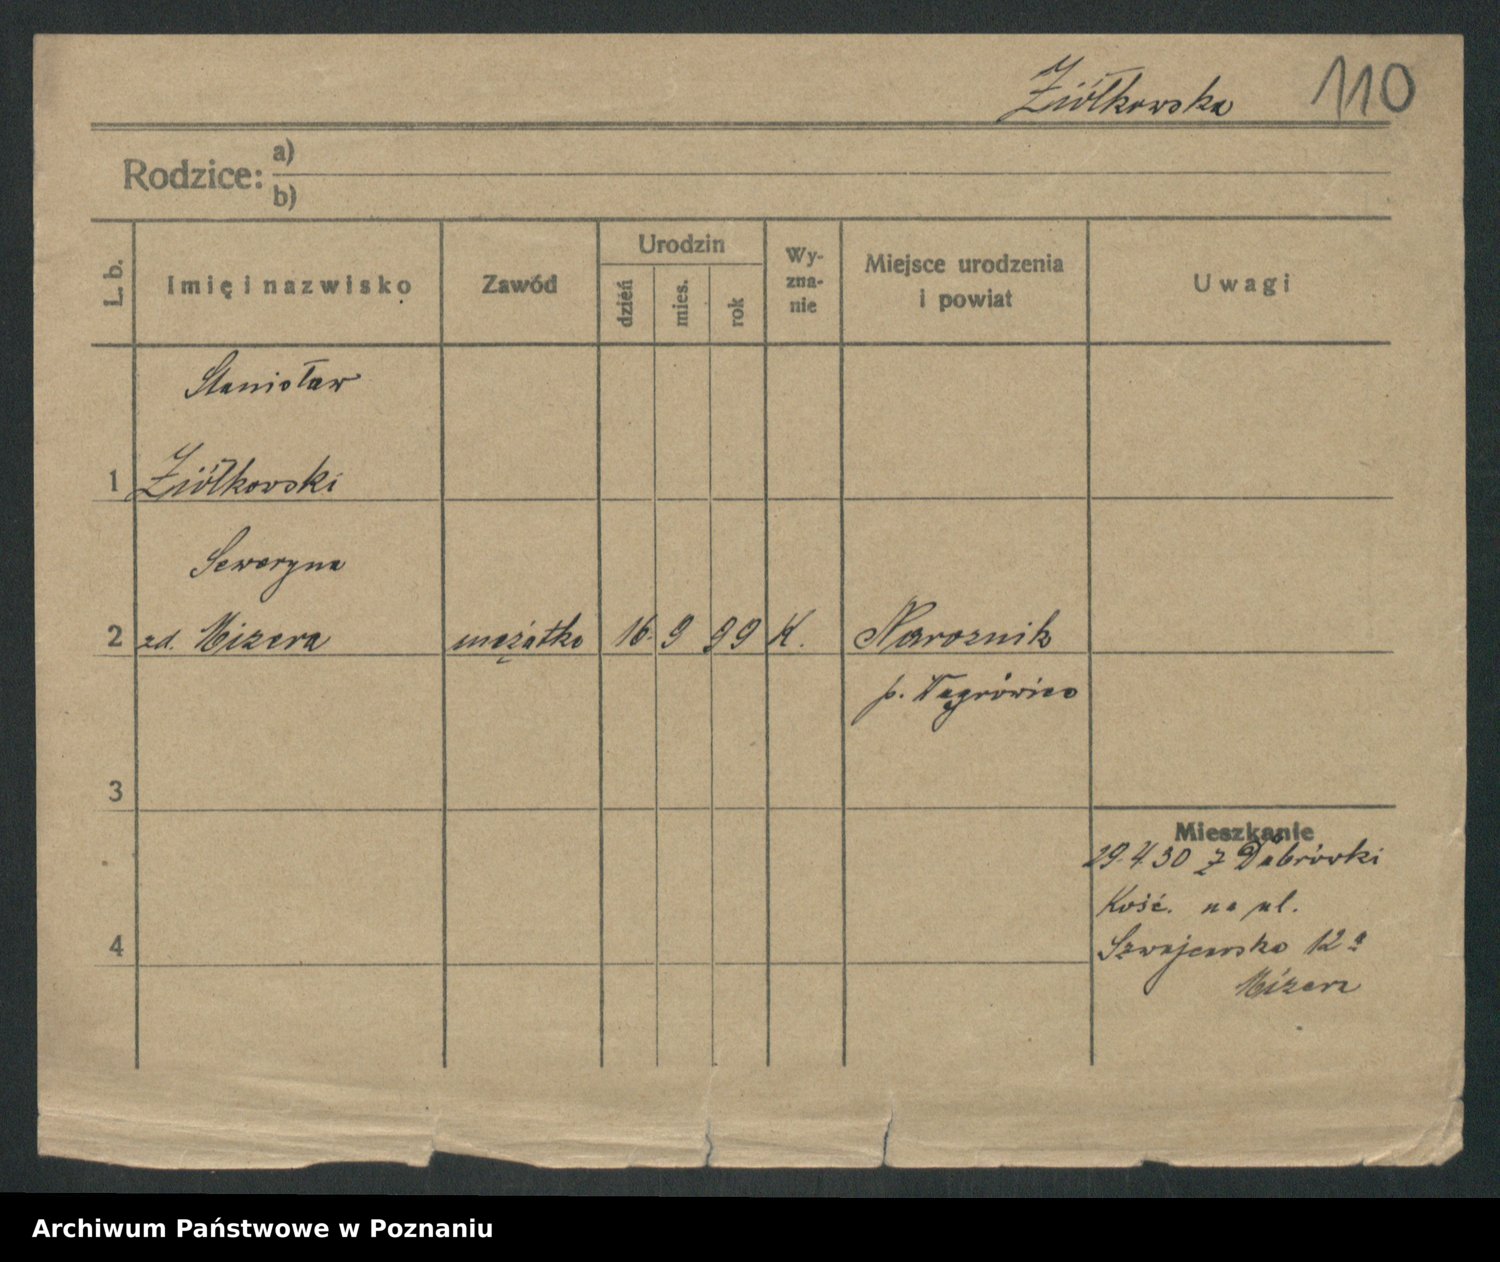 Ziółkowska 110
Rodzice: a)
b)
L. b.
Imię i nazwisko
Zawód
Urodzin
dzień
mies.
rok
Wy-
zna-
nie
Miejsce urodzenia
i powiat
Uwagi
Stanisław
1 Ziółkowski
Seweryna
2 zd. Mizera mężatka 16. 9 99 K. Narożnik
p. Wągrówiec
3
Mieszkanie
29.4.30 z Dabrówki
Kość. na ul.
4 Szwajcarska 12a
Mizera
Archiwum Państwowe w Poznaniu